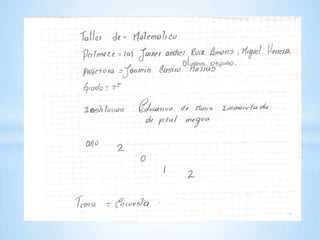 Taller de = Matematica
Pertenece = los Janer andres Ruiz Amaris, Miguel Herrera.
Olivares ospino.
profesora = Jasmin Castro Masias
Grado: 7º
Institucion Educativa de Maria Inmaculada
de pital megua
año 2
0
1
2
Tema = Encuesta